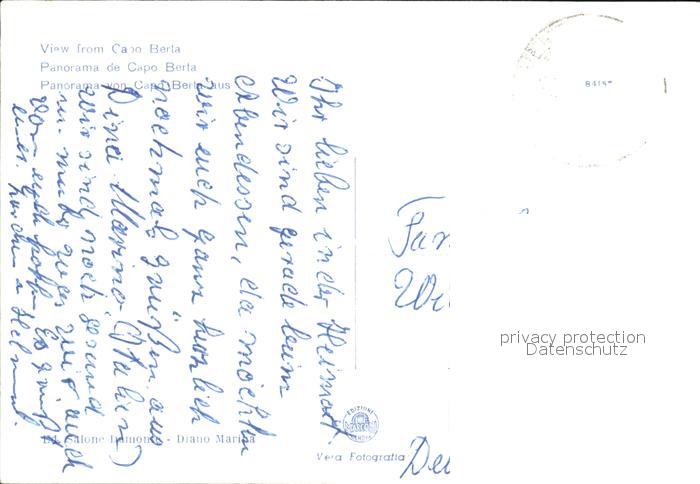 View from Capo Berta
Panorama de Capo Berta
Panorama von Capo Berta aus
Ihr lieben in der Heimat.
Wir sind gerade beim
Abendessen, da möchten
wir euch ganz herzlich
nochmals grüßen aus
Diano Marino (Italien)
Wir sind noch gesund
u.
von euch hoffen Es grüßt
Helmut.
Fam
Wi
Deu
privacy protection
Datenschutz
Ed. Salone - Diano Marina
EDIZIONI
Vera Fotografia